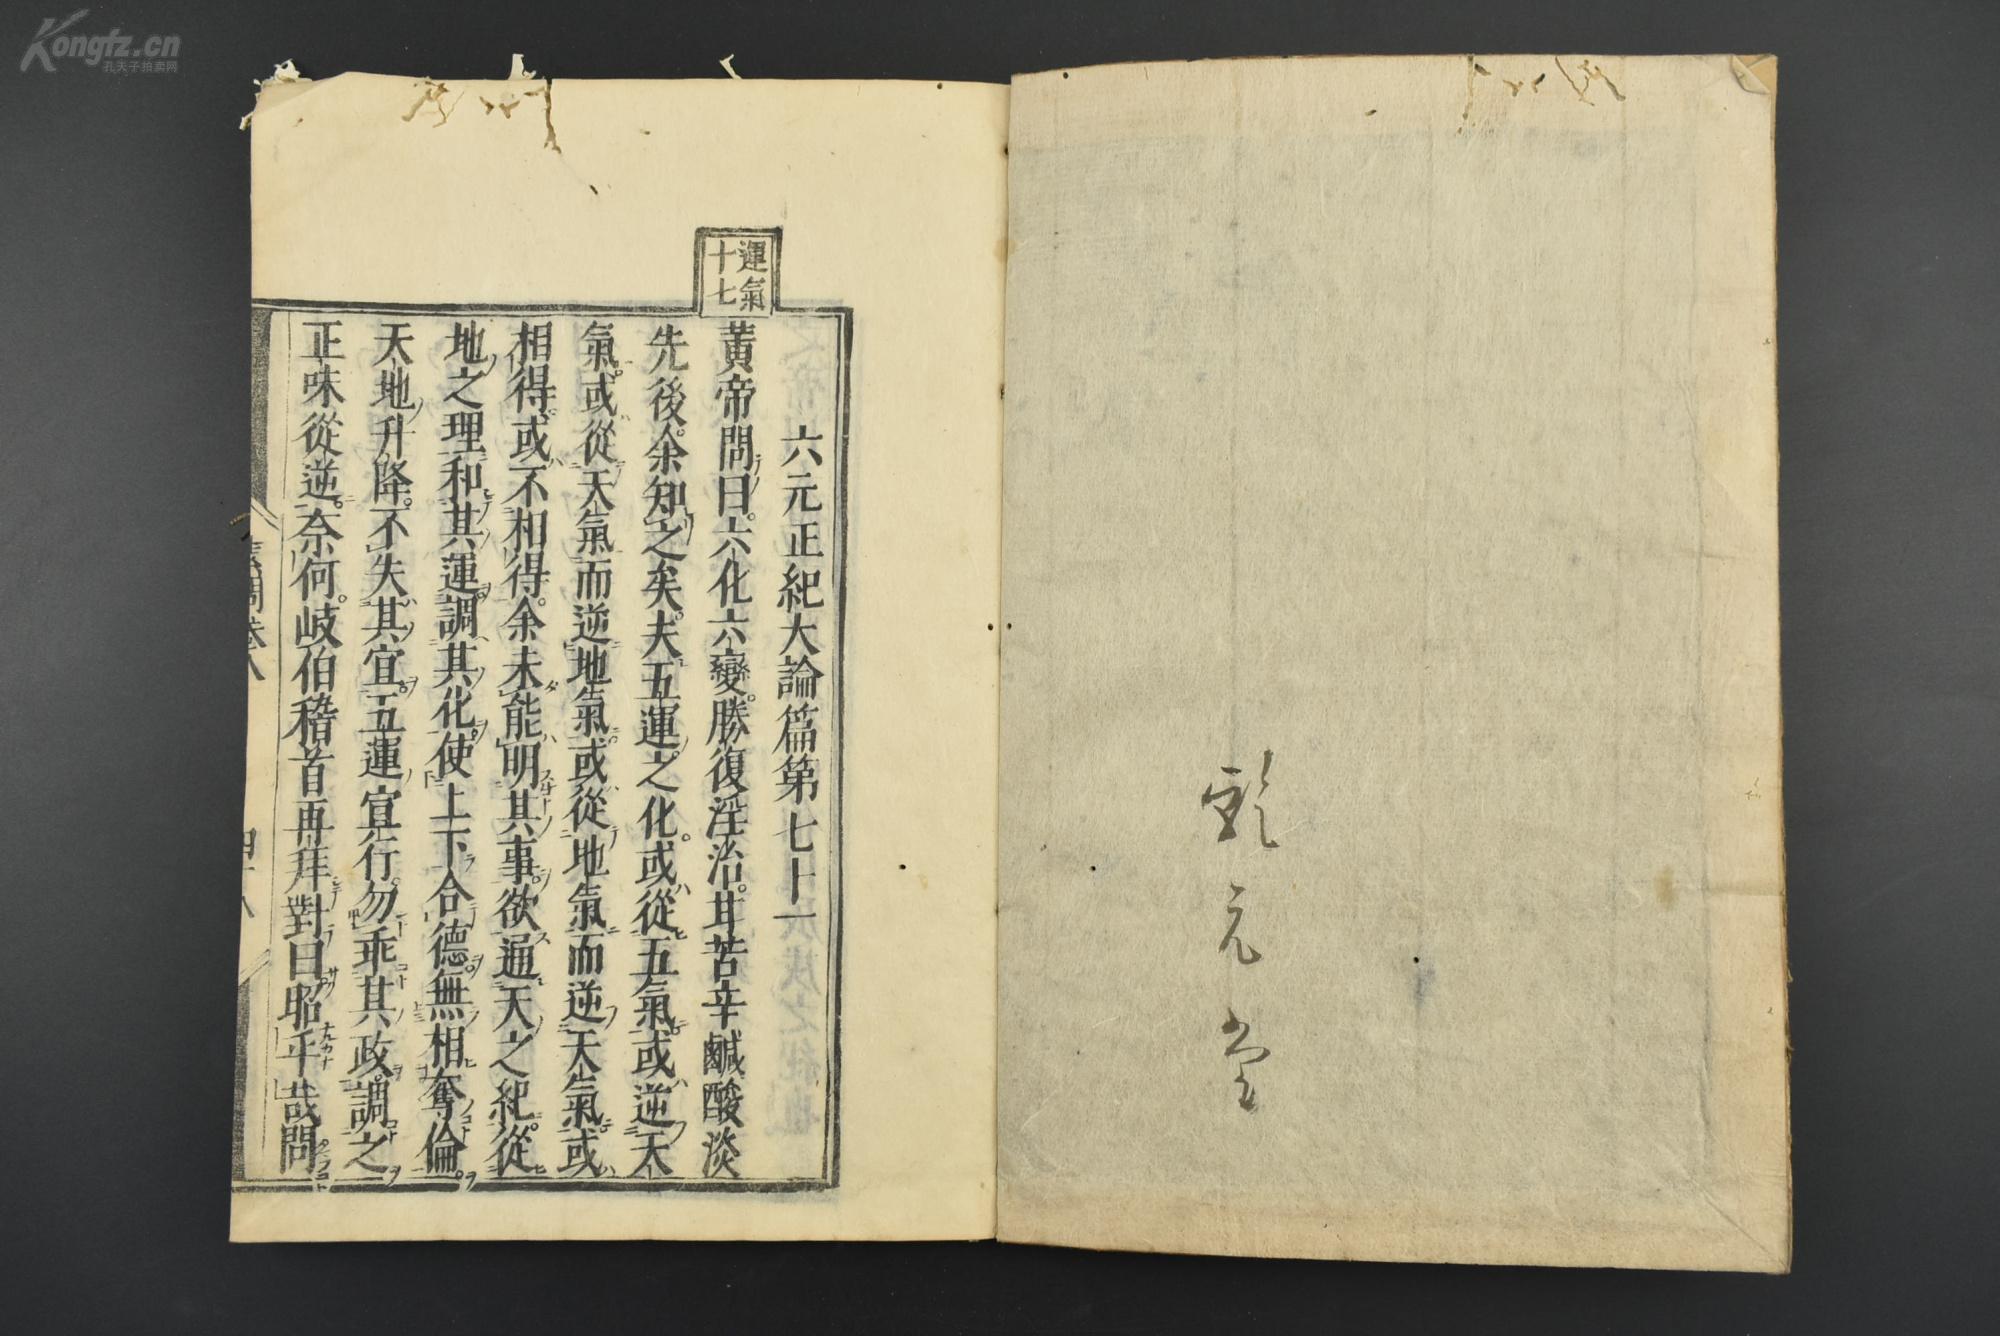 Kongfz.cn
孔夫子拍卖网
元堂
運氣
十七
六元正紀大論篇第七十一
黃帝問曰。六化六變。勝復淫治。甘苦辛鹹酸淡
先後。余知之矣。夫五運之化。或從五氣。或逆天
氣。或從天氣而逆地氣。或從地氣而逆天氣。或
相得。或不相得。余未能明其事。欲通天之紀。從
地之理。和其運。調其化。使上下合德。無相奪倫。
天地升降。不失其宜。五運宣行。勿乖其政。調之
正味從逆。奈何。岐伯稽首再拜對曰。昭乎哉問
素問卷八
四十八